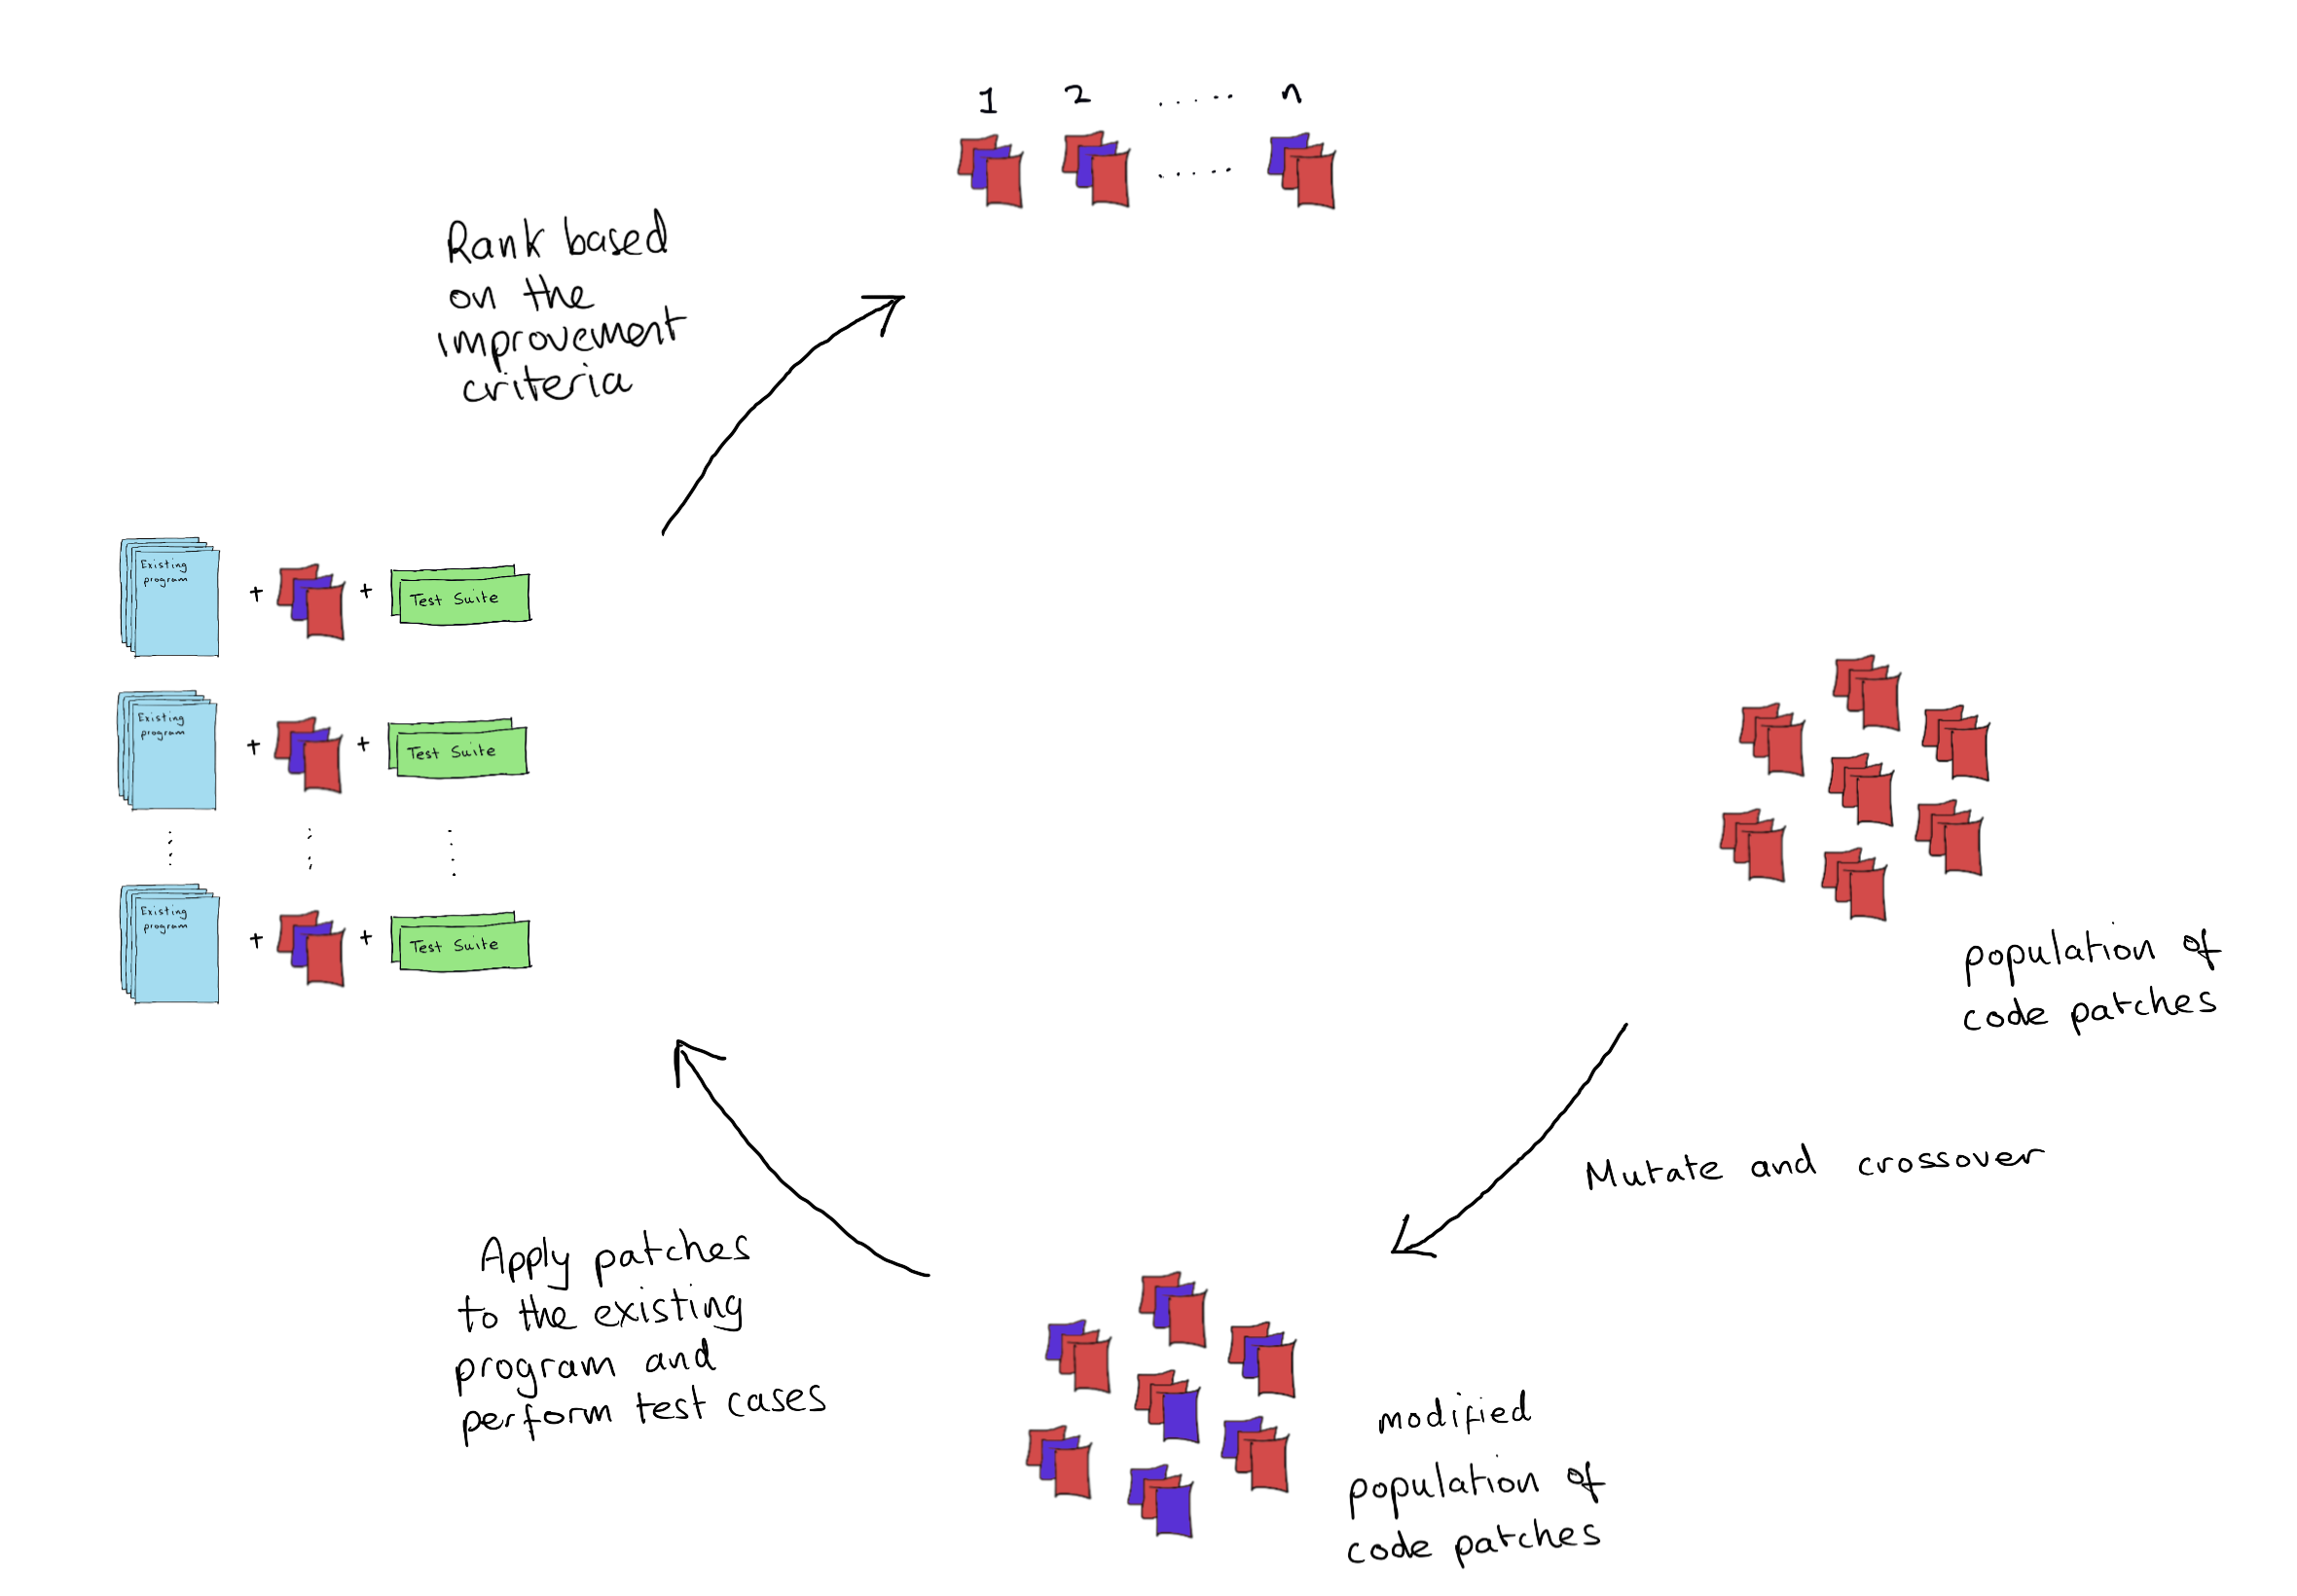 1 2 ...... n
......
Rank based
on the
improvement
criteria
Existing
program
+ + Test Suite
Existing
program
+ + Test Suite
Existing
program
+ + Test Suite
population of
code patches
Mutate and crossover
Apply patches
to the existing
program and
perform test cases
modified
population of
code patches